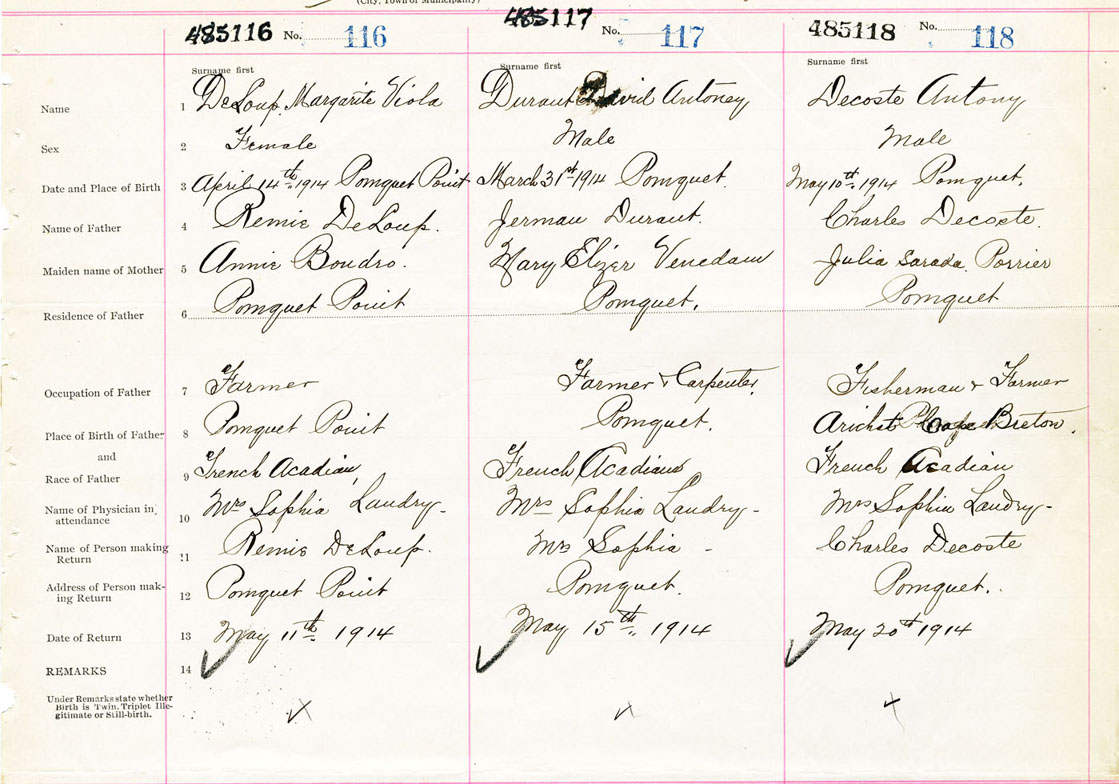 (City, Town or Municipality)
485116 No. 116 485117 No. 117 485118 No. 118
Surname first Surname first Surname first
Name 1 DeLoup, Margarite Viola Durant David Antoney Decoste Antony
Sex 2 Female Male Male
Date and Place of Birth 3 April 14th 1914 Pomquet Point March 31st 1914 Pomquet. May 10th 1914 Pomquet.
Name of Father 4 Remie DeLoup. Jerman Durant. Charles Decoste.
Maiden name of Mother 5 Annie Boudro. Mary Elizer Venedam Julia Sarada Porrier
Residence of Father 6 Pomquet Point Pomquet. Pomquet
Occupation of Father 7 Farmer Farmer & Carpenter. Fisherman & Farmer
Place of Birth of Father 8 Pomquet Point Pomquet. Arichat Cape Breton.
and
Race of Father 9 French Acadian, French Acadians French Acadian
Name of Physician in attendance 10 Mrs Sophia Landry- Mrs Sophia Landry- Mrs Sophia Landry-
Name of Person making Return 11 Remie DeLoup. Mrs Sophia - Charles Decoste
Address of Person making Return 12 Pomquet Point Pomquet. Pomquet.
Date of Return 13 May 11th 1914 May 15th, 1914 May 20th 1914
REMARKS 14
Under Remarks state whether
Birth is Twin, Triplet Ille-
gitimate or Still-birth.